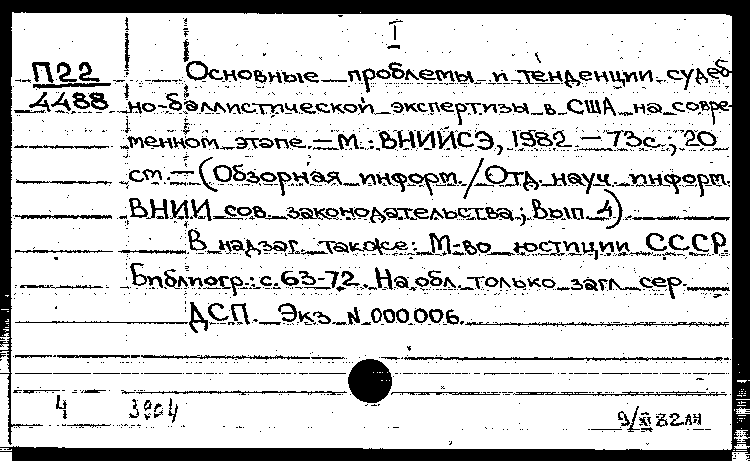 I
П22 Основные проблемы и тенденции судеб
4488 но-баллистической экспертизы в США на совре-
менном этапе. – М.: ВНИИСЭ, 1982 – 73с.; 20
см. – (Обзорная информ. / Отд. науч. информ.
ВНИИ сов. законодательства; Вып. 4)
В надзаг. также: М-во юстиции СССР
Библиогр.: с. 63-72. На обл. только загл. сер.
ДСП. Экз N 000006.
4 3904 9/XI 82 лн